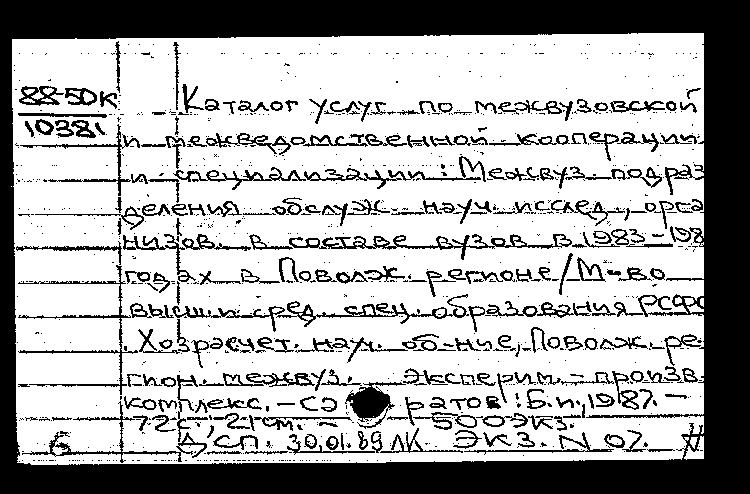 88-50к
10381
Каталог услуг по межвузовской
и межведомственной кооперации
и специализации: Межвуз. подраз
деления обслуж. науч. исслед., орга
низов. в составе вузов в 1983-198
годах в Поволж. регионе/М-во
высш. и сред. спец. образования РСФС
. Хозрасчет. науч. об-ние, Поволж. ре-
гион. межвуз. эксперим.-произв.
комплекс. - Са ратов: Б.и., 1987. -
72с.; 21см. - 500экз.
6 ДСП. 30.01.89 ЛК ЭКЗ. N 07.